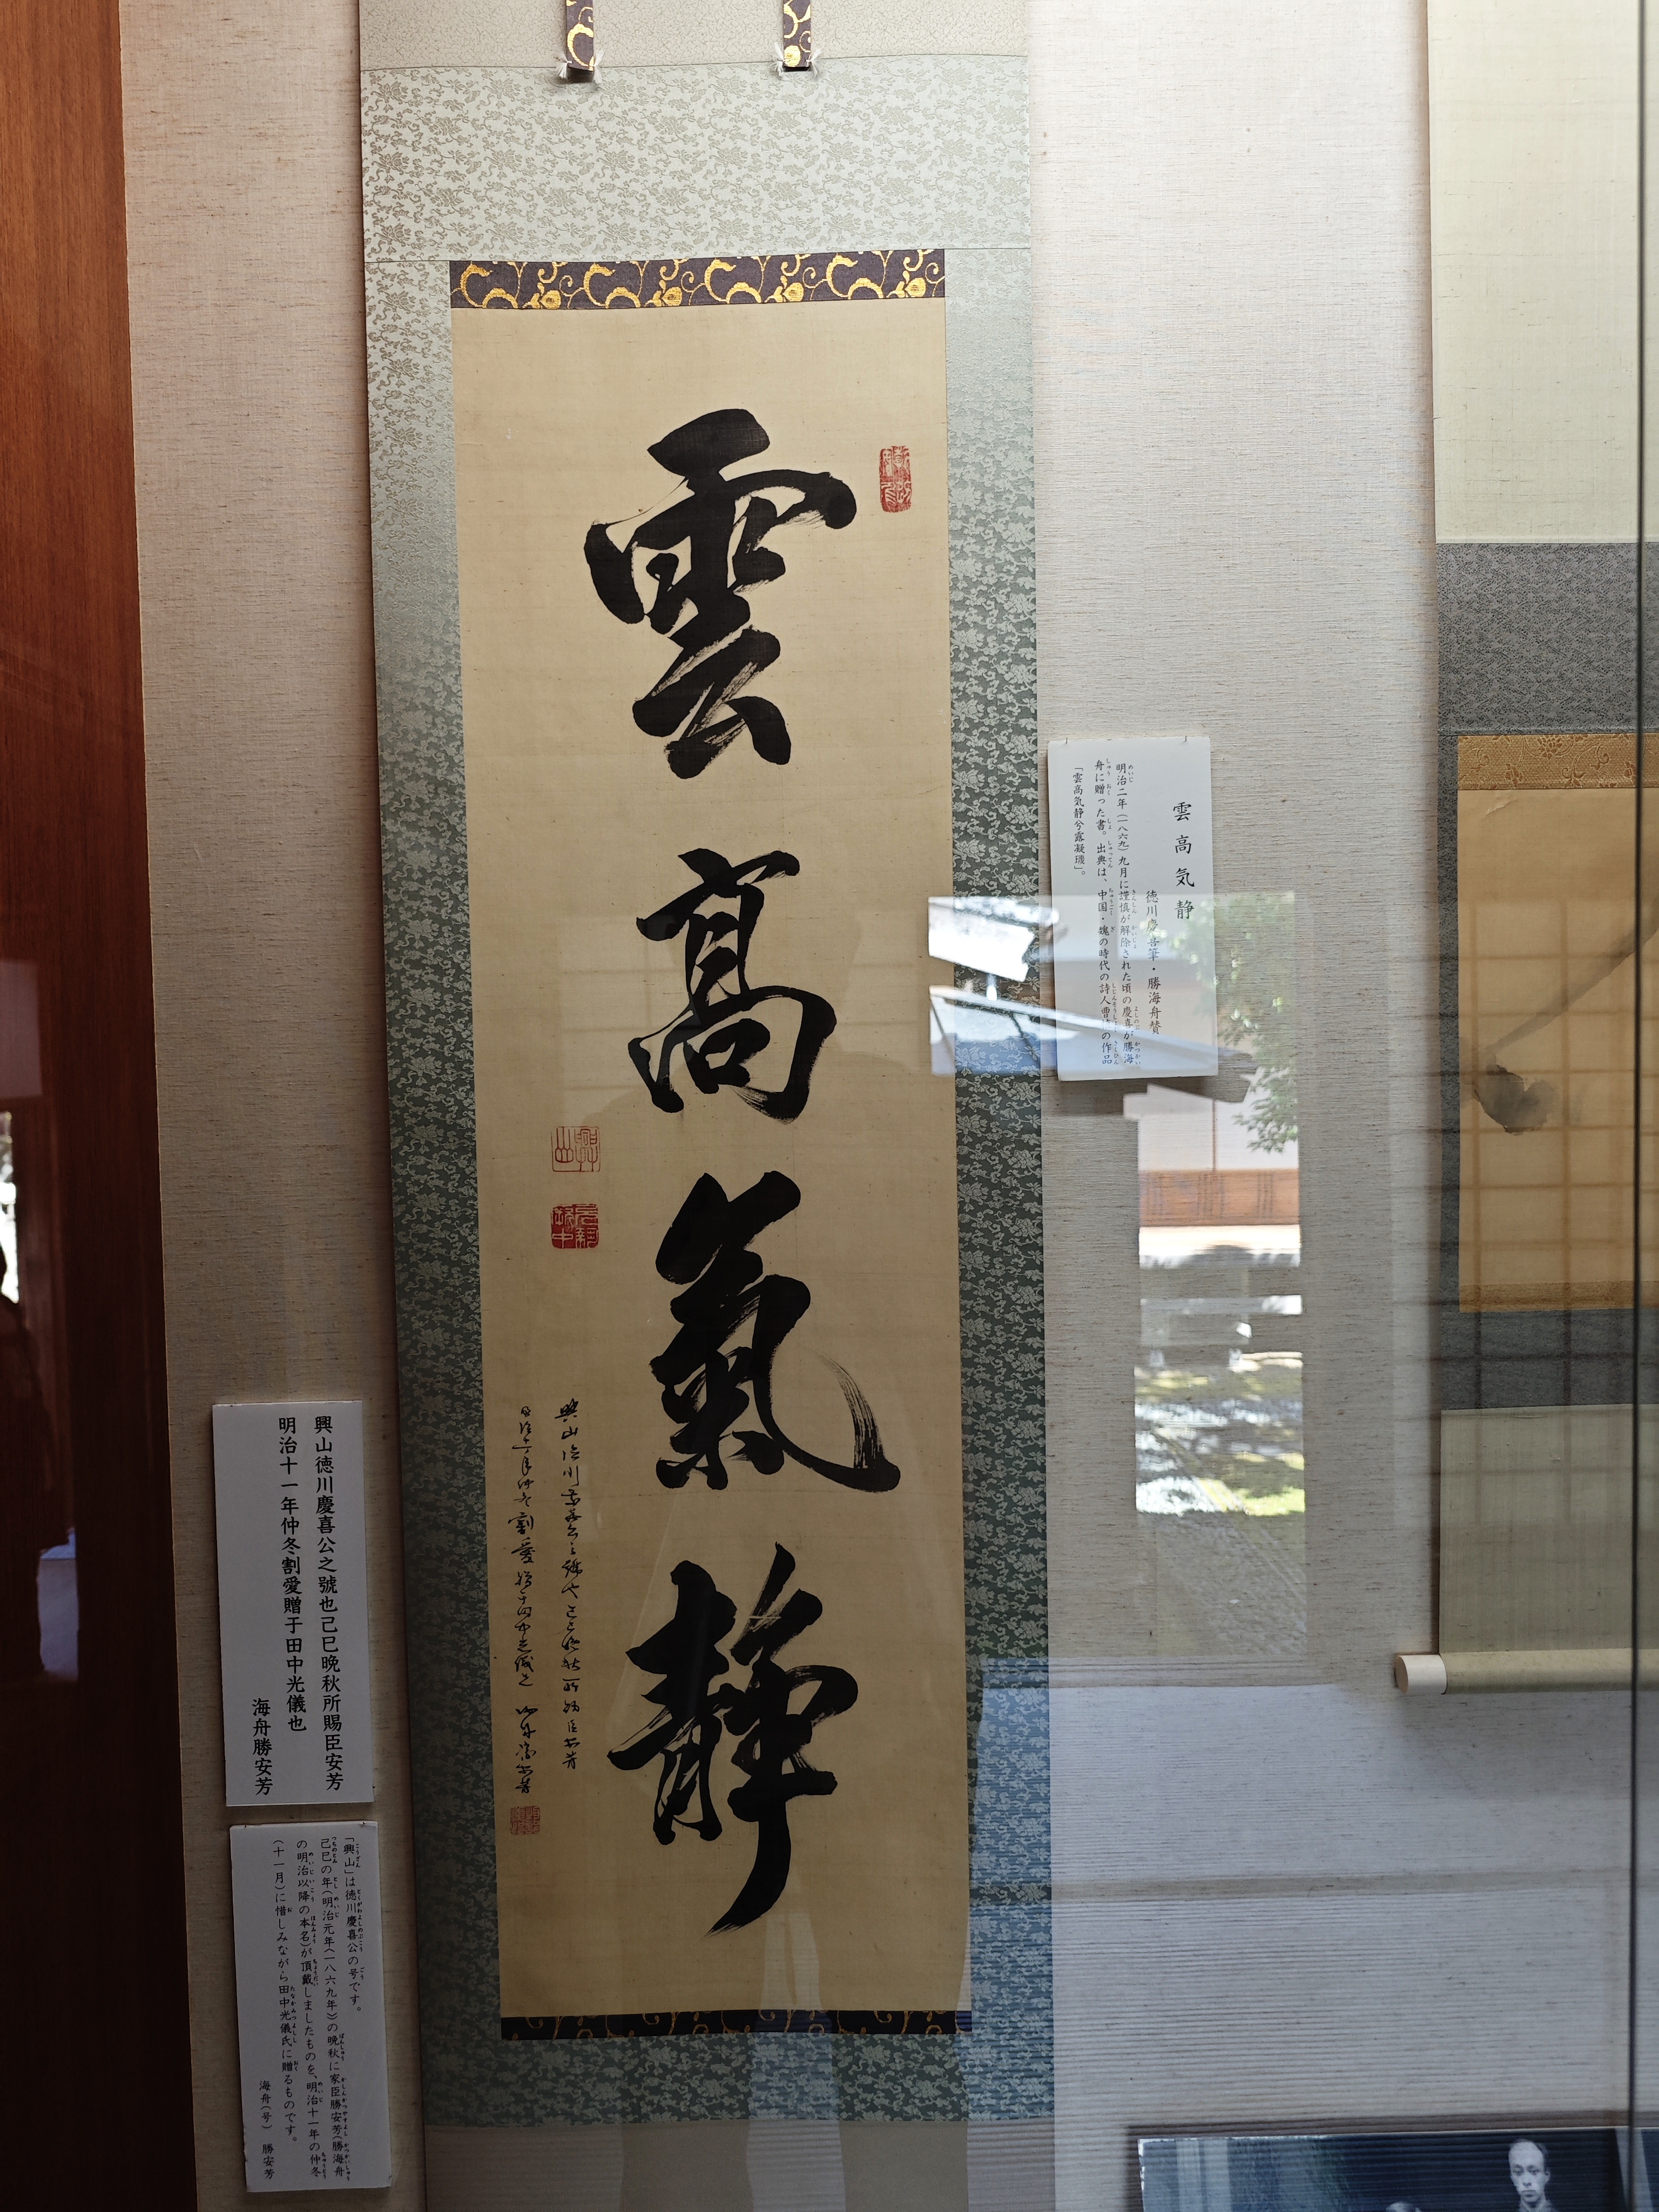 雲高氣靜
雲高気静
徳川慶喜筆・勝海舟賛
明治二年(一八六九)九月に謹慎が解除された頃の慶喜が勝海
舟に贈った書。出典は、中国・魏の時代の詩人曹の作品
「雲高気静兮露凝璣」。
興山徳川慶喜公之號也己巳晩秋所賜臣安芳
明治十一年仲冬割愛贈于田中光儀也
海舟勝安芳
「興山」は徳川慶喜公の号です。
己巳の年(明治元年(一八六九年))の晩秋に家臣勝安芳(勝海舟
の明治以降の本名)が頂戴しましたものを、明治十一年の仲冬
(十一月)に惜しみながら田中光儀氏に贈るものです。
海舟(号) 勝安芳